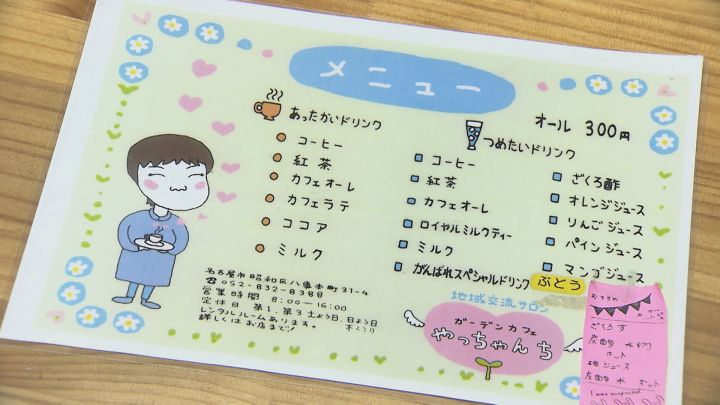 メニュー
オール 300円
あったかいドリンク
コーヒー
紅茶
カフェオーレ
カフェラテ
ココア
ミルク
つめたいドリンク
コーヒー
紅茶
カフェオーレ
ロイヤルミルクティー
ミルク
がんばれスペシャルドリンク ぶどう
ざくろ酢
オレンジジュース
りんごジュース
パインジュース
マンゴジュース
名古屋市昭和区八事本町31-4
☎052-832-8388
営業時間 8:00〜16:00
定休日 第1、第3土よう日 日よう日
レンタルルームあります。
詳しくはお店まで!
地域交流サロン
ガーデンカフェ
やっちゃんち
ざくろす
炭酸
ホット
ジュース
炭酸 水 ホット